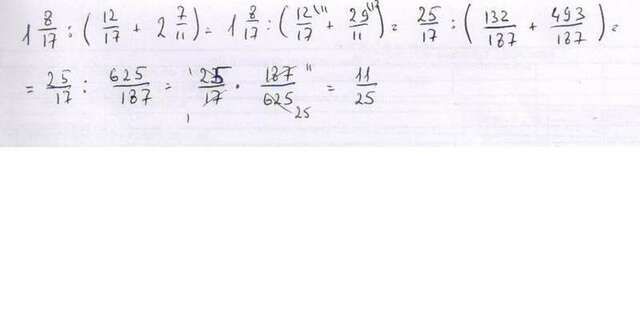 1 8/17 : (12/17 + 2 7/11) = 1 8/17 : (12\11/17 + 29\17/11) = 25/17 : (132/187 + 493/187) =
= 25/17 : 625/187 = 25 1/17 1 · 187 11/625 25 = 11/25